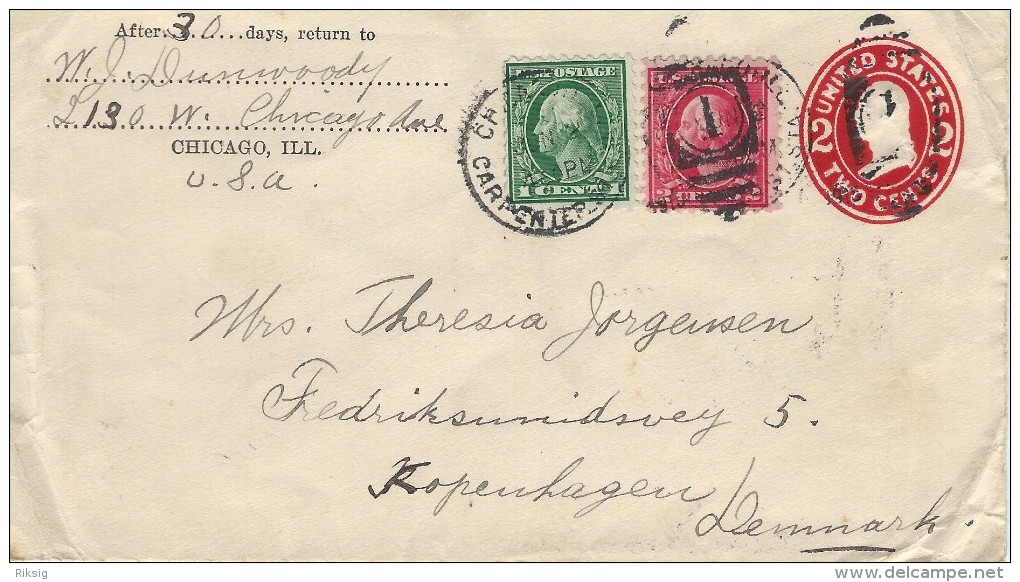 After 30 days, return to
W. J. Dunwoody
2130 W. Chicago Ave
CHICAGO, ILL.
U.S.A.
POSTAGE
1 CENT 1
CARPENTER
1
2 CENTS 2
UNITED STATES
2 2
TWO CENTS
Mrs. Theresia Jorgensen
Fredriksundsvey 5.
Kopenhagen
Denmark.
Riksig
delcampe.net